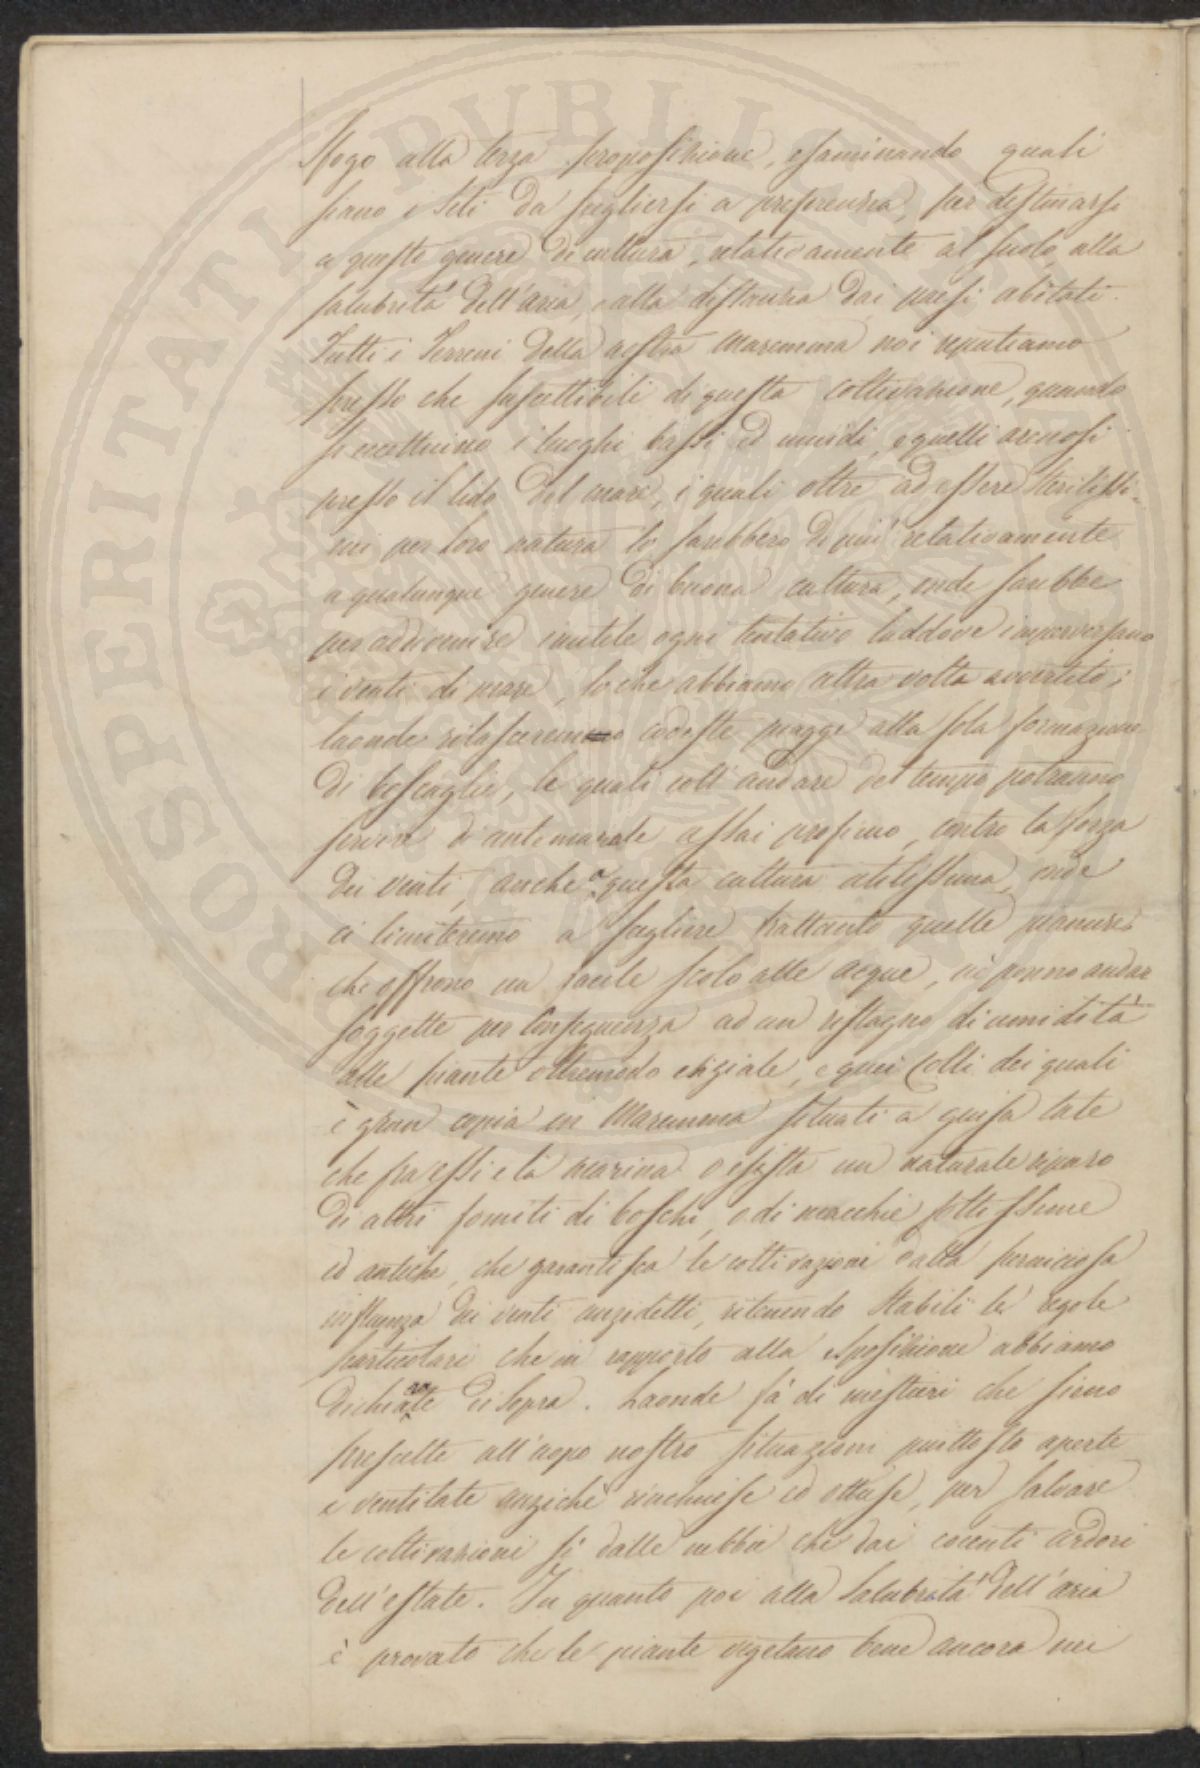 sfogo alla terza proposizione, esaminando quali
siano i Siti da scegliersi a preferenza, per destinarsi
a questo genere di cultura, relativamente al suolo, alla
salubrità dell'aria, e alla distanza dai paesi abitati.
Tutti i Terreni della nostra Maremma noi reputiamo
presso che suscettibili di questa coltivazione, quando
si eccettuino i luoghi bassi ed umidi, e quelli arenosi
presso il lido del mare, i quali oltre ad essere sterilissi-
mi per loro natura lo sarebbero di più relativamente
a qualunque genere di buona cultura, onde sarebbe
per addivenire inutile ogni tentativo laddove imperversano
i venti di mare, lo che abbiamo altra volta avvertito;
laonde rilasceremo codeste piagge alla sola formazione
di boscaglie, le quali coll'andare del tempo potranno
servire d'antemurale assai prossimo, contro la forza
dei venti, anche a questa cultura utilissima, onde
ci limiteremo a scegliere frattanto quelle pianure
che offrono un facile scolo alle acque, nè ponno andar
soggette per conseguenza ad un ristagno di umidità
alle piante oltremodo esiziale, e quei Colli dei quali
è gran copia in Maremma situati a guisa tale
che fra essi e la marina o esista un naturale riparo
di altri forniti di boschi, o di macchie foltissime
ed antiche, che garantisca le coltivazioni dalla perniciosa
influenza dei venti anzidetti, ritenendo stabili le regole
particolari che in rapporto alla esposizione abbiamo
dichiarate di sopra. Laonde fà di mestieri che sieno
prescelte all'uopo nostro situazioni piuttosto aperte
e ventilate anzichè rinchiuse ed ottuse, per salvare
le coltivazioni sì dalle nebbie che dai cocenti ardori
dell'estate. In quanto poi alla salubrità dell'aria
è provato che le piante vegetano bene ancora nei
PROSPERITATI PUBLICAE